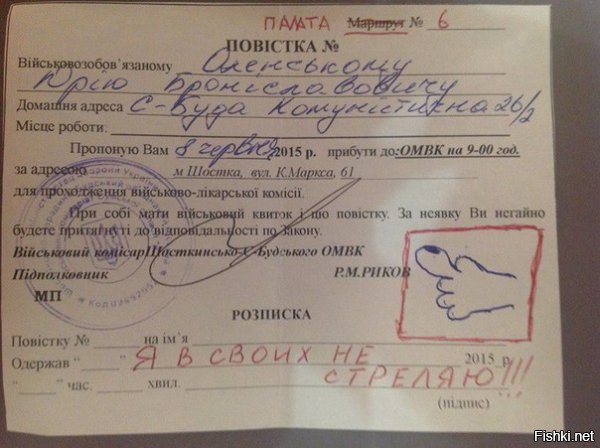 ПАЛАТА Маршрут № 6
ПОВІСТКА №
Військовозобов'язаному Оленському
Юрію Броніславовичу
Домашня адреса С-Буда Комуністична 26/2
Місце роботи:
Пропоную Вам 8 червня 2015 р. прибути до: ОМВК на 9-00 год.
за адресою м Шостка, вул. К.Маркса, 61
для проходження військово-лікарської комісії.
При собі мати військовий квиток і цю повістку. За неявку Ви негайно
будете притягнуті до відповідальності по Закону.
Військовий комісар Шосткинсько-С-Будського ОМВК
Підполковник Р.М.РИКОВ
МП
РОЗПИСКА
Повістку № на ім'я
Одержав " " Я В СВОИХ НЕ 2015 р.
" " час. хвил. СТРЕЛЯЮ!!!
(підпис)
Fishki.net